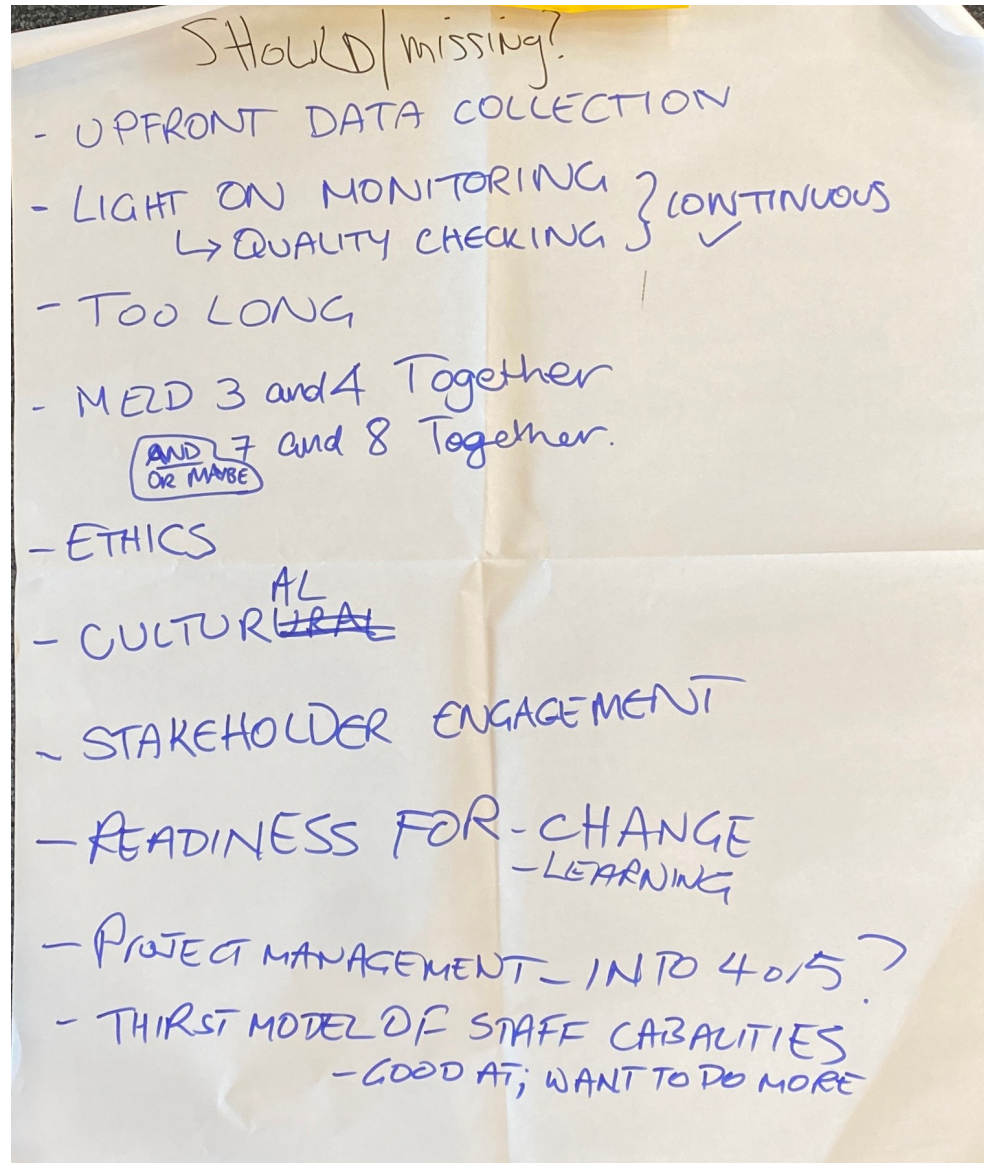 SHOULD/missing?
- UPFRONT DATA COLLECTION
- LIGHT ON MONITORING } CONTINUOUS
↳ QUALITY CHECKING ✓
- TOO LONG
- MELD 3 and 4 Together
AND OR MAYBE 7 and 8 Together.
- ETHICS
- CULTURAL
- STAKEHOLDER ENGAGEMENT
- READINESS FOR - CHANGE
- LEARNING
- PROJECT MANAGEMENT - INTO 4 or 5?
- THIRST MODEL OF STAFF CABALITIES
- GOOD AT; WANT TO DO MORE